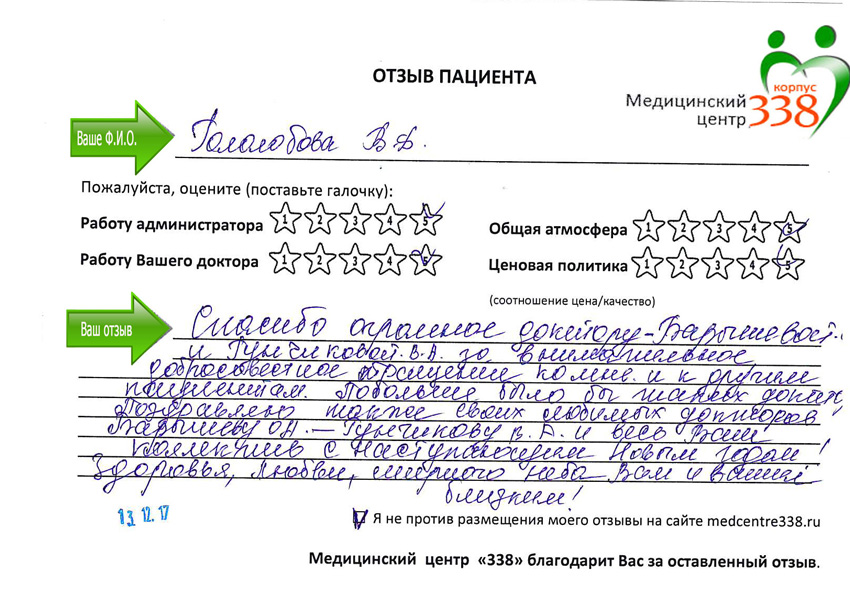 ОТЗЫВ ПАЦИЕНТА
Медицинский центр
корпус 338
Ваше Ф.И.О.
Гололобова В Д.
Пожалуйста, оцените (поставьте галочку):
Работу администратора 1 2 3 4 5
Общая атмосфера 1 2 3 4 5
Работу Вашего доктора 1 2 3 4 5
Ценовая политика 1 2 3 4 5
(соотношение цена/качество)
Ваш отзыв
Спасибо огромное доктору - Барышевой
и Гунчиковой В.А. за внимательное
добросовестное отношение ко мне и к другим
пациентам. Побольше было бы таких
Поздравляю также своих любимых докторов
Барышеву О.А. - Гунчикову В.А. и весь Ваш
коллектив с Наступающим Новым годом!
Здоровья, Любви, мирного неба Вам и вашим
близким!
13.12.17
Я не против размещения моего отзывы на сайте medcentre338.ru
Медицинский центр «338» благодарит Вас за оставленный отзыв.